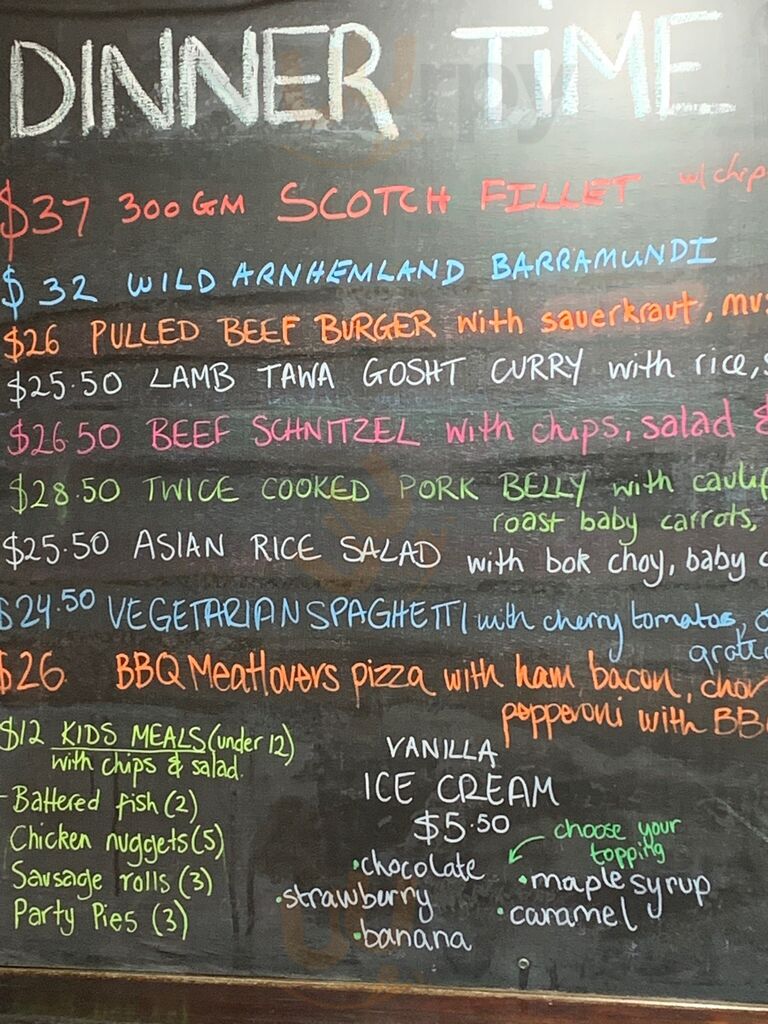 DINNER TiME
$37 300GM SCOTCH FILLET w/ chip
$32 WILD ARNHEMLAND BARRAMUNDI
$26 PULLED BEEF BURGER with sauerkraut, mus
$25.50 LAMB TAWA GOSHT CURRY with rice,
$26.50 BEEF SCHNITZEL with chips, salad &
$28.50 TWICE COOKED PORK BELLY with caulif
roast baby carrots,
$25.50 ASIAN RICE SALAD with bok choy, baby c
$24.50 VEGETARIAN SPAGHETTI with cherry tomatoes,
$26 BBQ Meatlovers pizza with ham, bacon, chor
pepperoni with BB
$12 KIDS MEALS (under 12)
with chips & salad.
Battered fish (2)
Chicken nuggets (5)
Sausage rolls (3)
Party Pies (3)
VANILLA
ICE CREAM
$5.50
choose your
topping
•chocolate
•strawberry
•banana
•maple syrup
•caramel